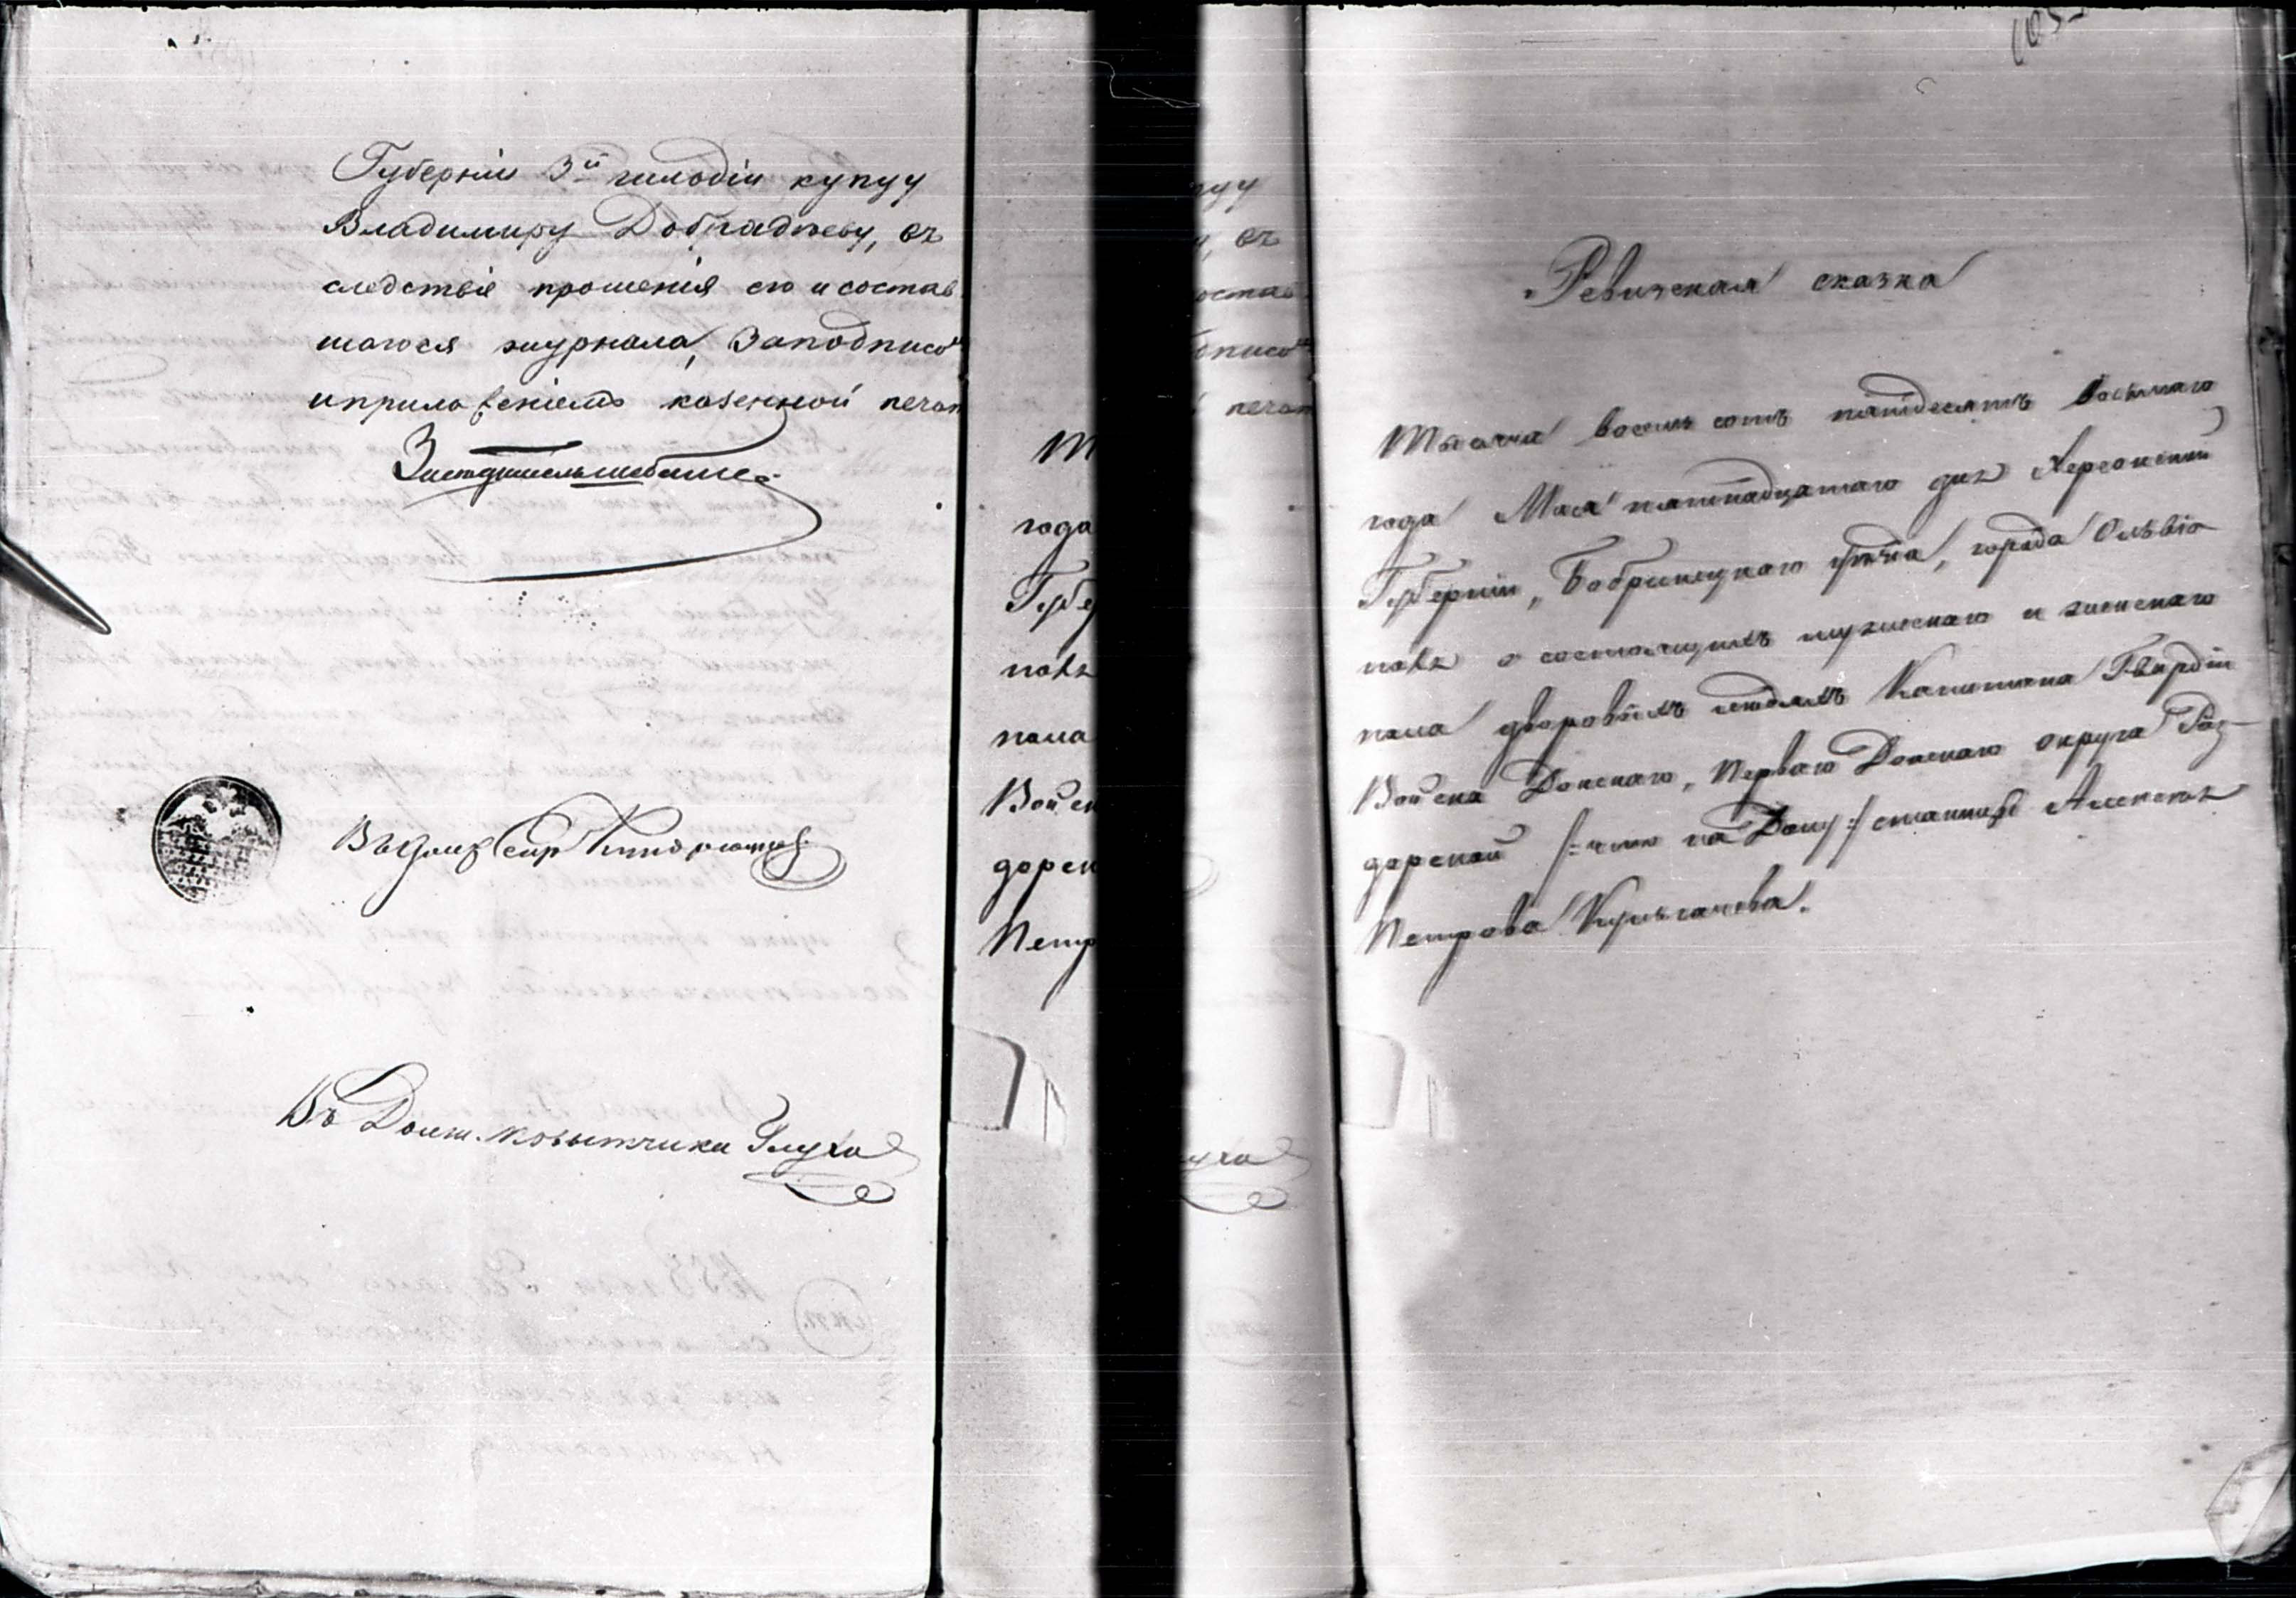 Губерніи 3й гильдіи купцу
Владимиру Добрадѣеву, въ
следствіе прошенія его и состав
шагося журнала, Заподписо
иприложеніемъ казенной печат
Въ Долж. повытчика Глуха
105
Ревизская сказка
Тысяча восемь сотъ пятідесятъ восьмаго
года Мая пятнадцатаго дня Херсонской
Губерніи, Бобринецкаго уѣзда, города Ольвіо
поля о состоящихъ мужескаго и женскаго
пола дворовыхъ людяхъ Капитана Гвардіи
Войска Донскаго, Перваго Донскаго округа Раз-
дорской /:что на Дону:/ станицы Алексея
Петрова Кульгачева.